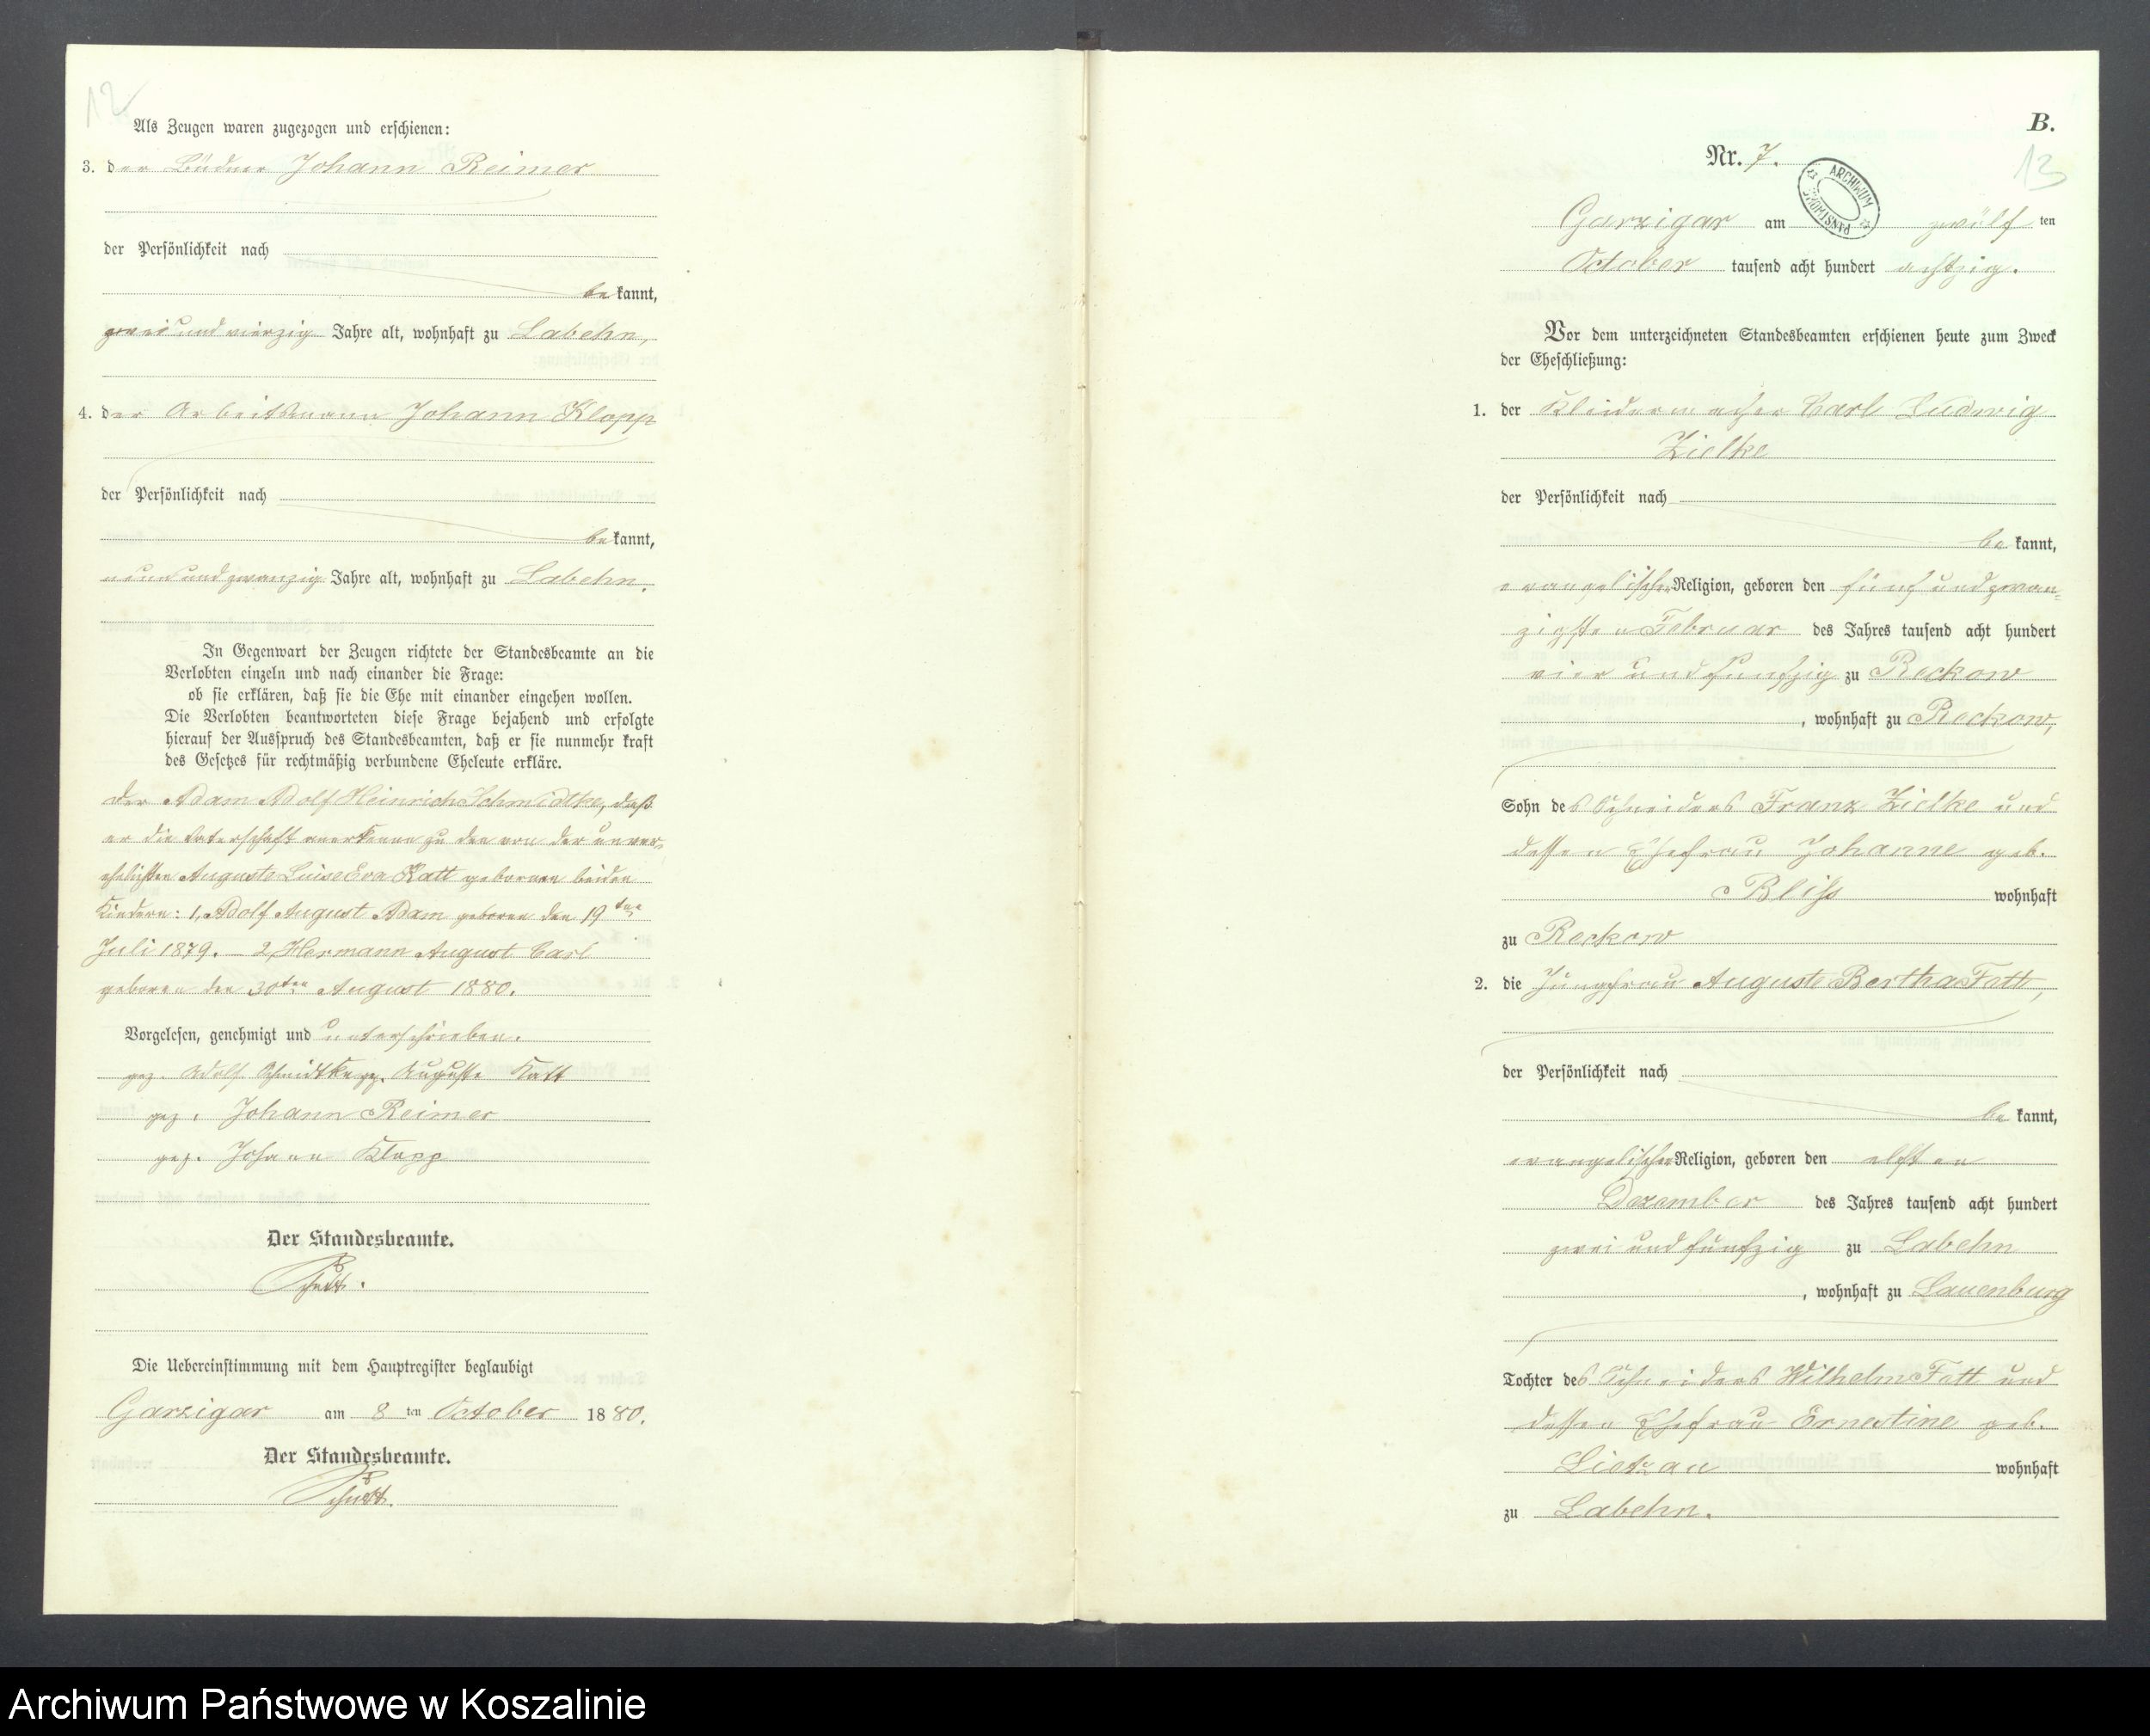 12
Als Zeugen waren zugezogen und erschienen:
3. der Büdner Johann Reimer
der Persönlichkeit nach
bekannt,
zwei und vierzig Jahre alt, wohnhaft zu Labehn,
4. der Arbeitsmann Johann Klopp
der Persönlichkeit nach
bekannt,
neun und zwanzig Jahre alt, wohnhaft zu Labehn.
In Gegenwart der Zeugen richtete der Standesbeamte an die
Verlobten einzeln und nach einander die Frage:
ob sie erklären, daß sie die Ehe mit einander eingehen wollen.
Die Verlobten beantworteten diese Frage bejahend und erfolgte
hierauf der Ausspruch des Standesbeamten, daß er sie nunmehr kraft
des Gesetzes für rechtmäßig verbundene Eheleute erkläre.
Der Adam Adolf Heinrich Schmidtke, daß
er die Vaterschaft anerkenne zu den von der unver-
ehelichten Auguste Luise Eva Katt geborenen beiden
Kindern: 1, Adolf August Adam geboren den 19ten
Juli 1879. – 2, Hermann August Carl
geboren den 30ten August 1880.
Vorgelesen, genehmigt und unterschrieben.
gez. Adolf Schmidtke gez. Auguste Katt
gez. Johann Reimer
gez. Johann Klopp
Der Standesbeamte.
Die Uebereinstimmung mit dem Hauptregister beglaubigt
Garzigar am 8 ten October 1880.
Der Standesbeamte.
B.
Nr. 7.
13
ARCHIWUM PAŃSTWOWE
Garzigar am zwölf ten
October tausend acht hundert achtzig.
Vor dem unterzeichneten Standesbeamten erschienen heute zum Zweck
der Eheschließung:
1. der Kleidermacher Carl Ludwig
Zielke
der Persönlichkeit nach
bekannt,
evangelischer Religion, geboren den fünf und zwan-
zigsten Februar des Jahres tausend acht hundert
vier und funfzig zu Reckow
, wohnhaft zu Reckow,
Sohn des Schneiders Franz Zielke und
dessen Ehefrau Johanne geb.
Bliß wohnhaft
zu Reckow
2. die Jungfrau Auguste Bertha Fott,
der Persönlichkeit nach
bekannt,
evangelischer Religion, geboren den elften
Dezember des Jahres tausend acht hundert
zwei und funfzig zu Labehn
, wohnhaft zu Lauenburg
Tochter des Schneiders Wilhelm Fott und
dessen Ehefrau Ernestine geb.
Lietzau wohnhaft
zu Labehn.
Archiwum Państwowe w Koszalinie